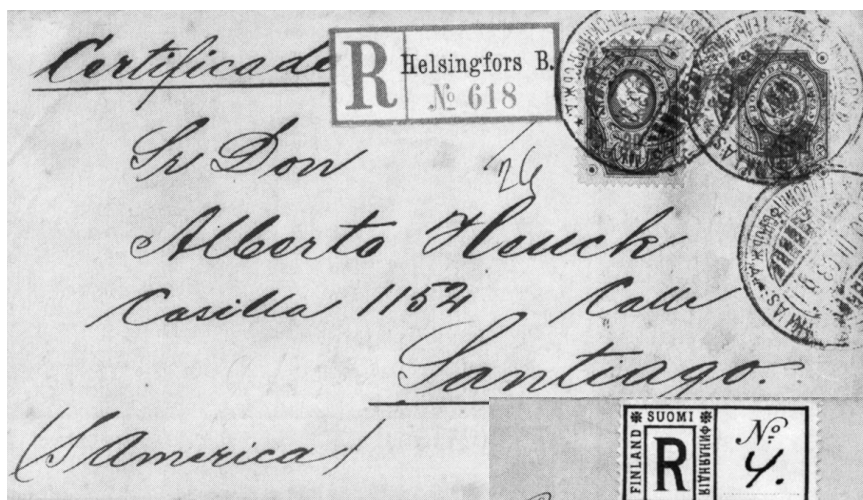 Certificado
R Helsingfors B.
№ 618
Sr Don
26
Alberto Heuck
Casilla 1152 Calle
Santiago.
(S America)
FINLAND SUOMI ФИНЛЯНДІЯ
R № 4.